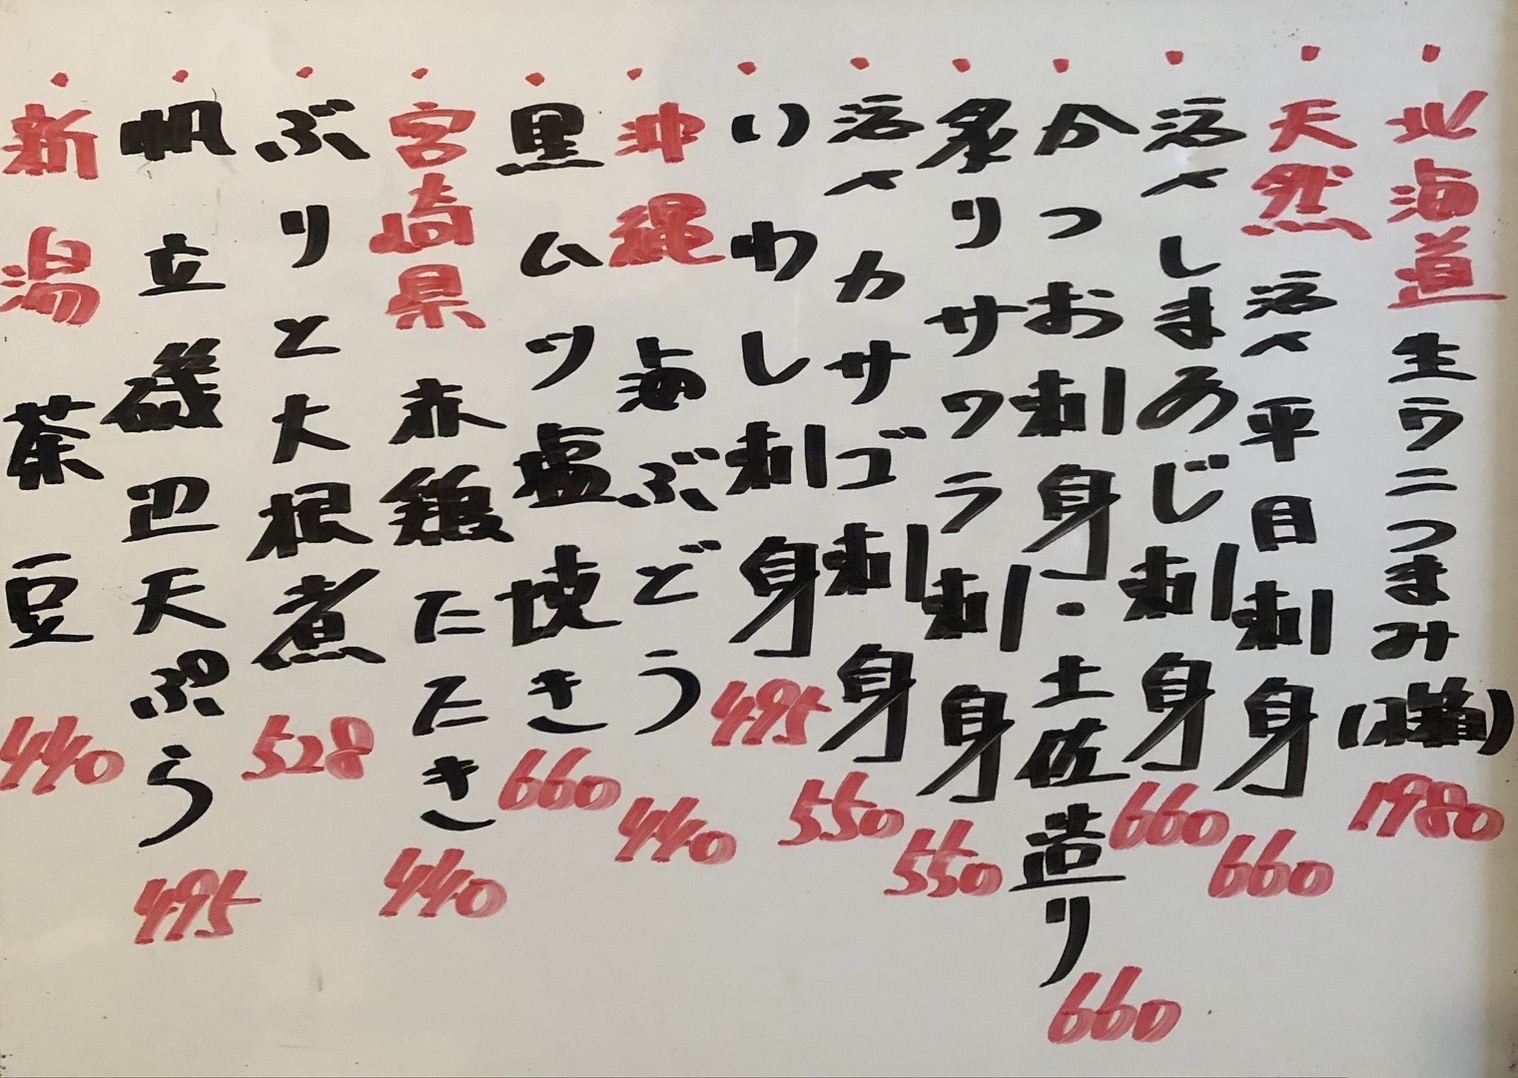 ・北海道 生ウニつまみ 1980
・天然 活〆平目刺身 660
・活〆しまあじ刺身 660
・かつお刺身・土佐造り 660
・炙りサワラ刺身 550
・活〆カサゴ刺身 550
・いわし刺身 495
・沖縄 海ぶどう 440
・黒ムツ塩焼き 660
・宮崎県 赤鶏たたき 440
・ぶりと大根煮 528
・帆立磯辺天ぷら 495
・新潟 茶豆 440